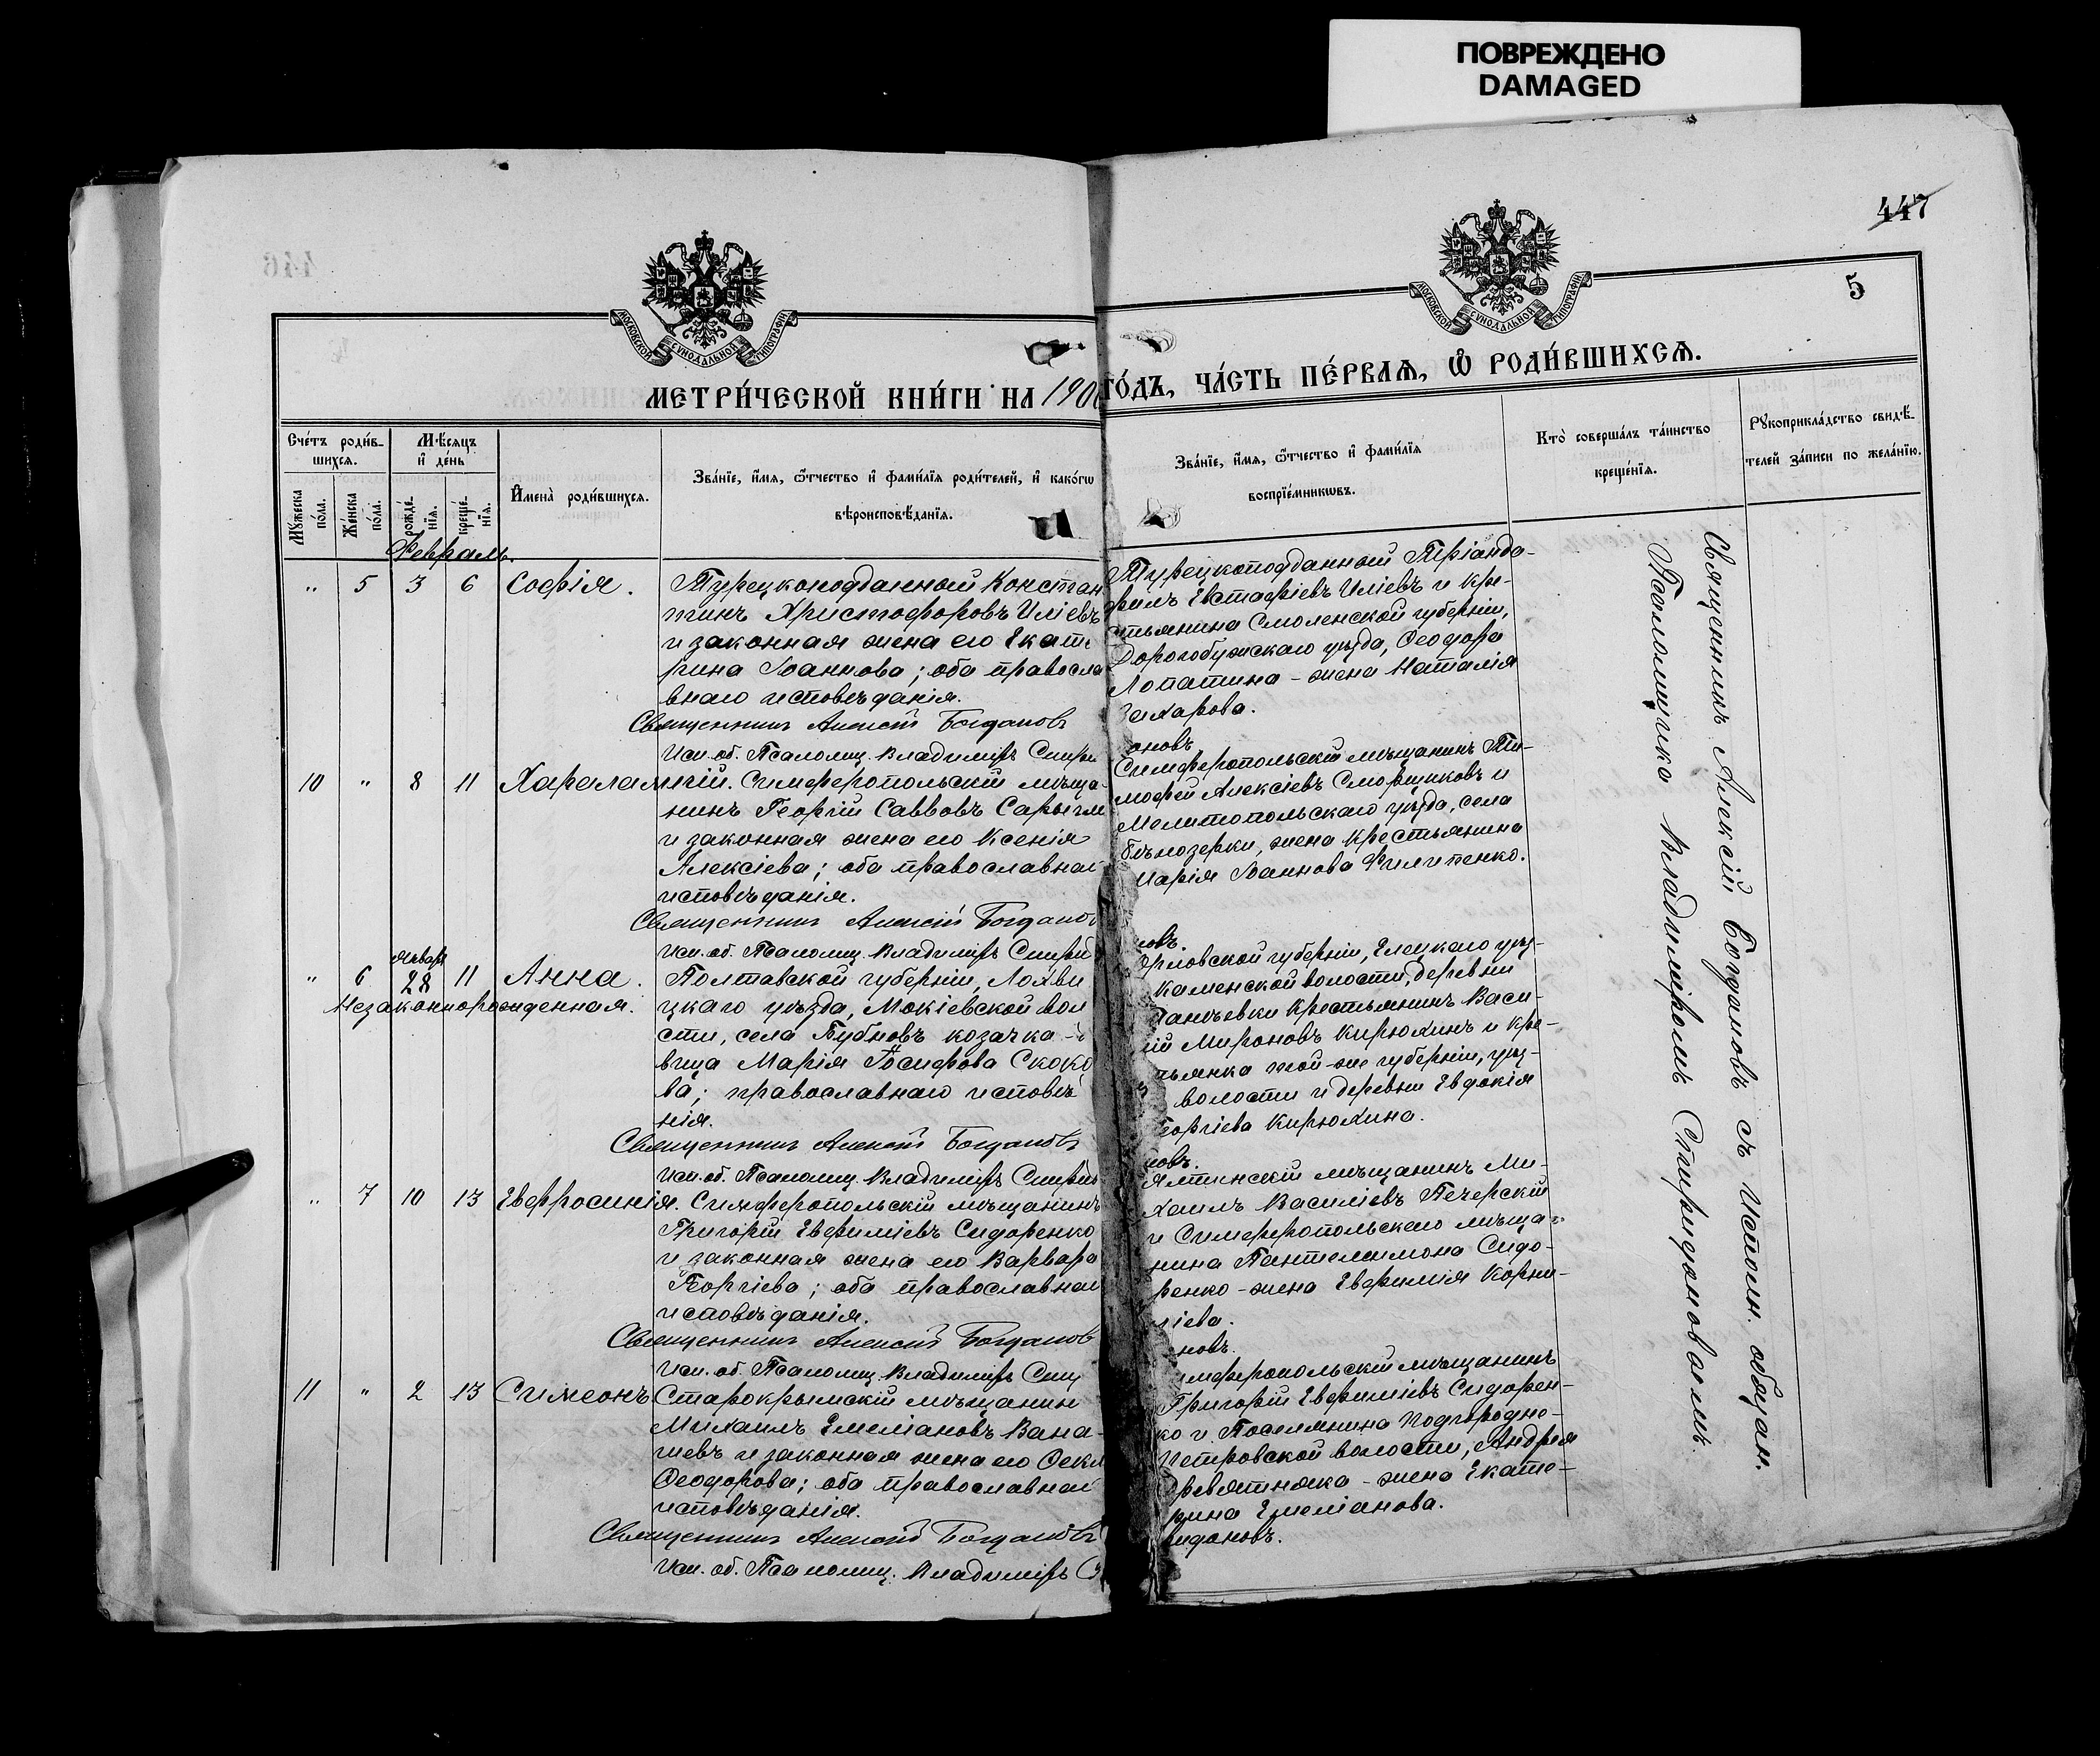 ПОВРЕЖДЕНО
DAMAGED
447
5
МОСКОВСКОЙ СѴНОДАЛЬНОЙ ТИПОГРАФІИ
МОСКОВСКОЙ СѴНОДАЛЬНОЙ ТИПОГРАФІИ
МЕТРИ́ЧЕСКОЙ КНИ́ГИ НА 190
ГО́ДЪ, ЧА́СТЬ ПЕ́РВАѦ, Ѽ РОДИ́ВШИХСѦ.
Сче́тъ роди́в-
шихся.
Мѣ́сяцъ
и҆ де́нь
Мꙋжеска по́ла.
Же́нска по́ла.
рожде́нїя.
креще́нїя.
И҆мена̀ роди́вшихся.
Зва́нїе, и҆́мя, ѻ҆́тчество и҆ фами́лїя роди́телей, и҆ како́гѡ
вѣроисповѣ́данїя.
Зва́нїе, и҆́мя, ѻ҆́тчество и҆ фами́лїя
воспрїе́мникѡвъ.
Кто̀ соверша́лъ та́инство
креще́нїя.
Рꙋкоприкла́дство свидѣ́-
телей за́писи по жела́нїю.
Февраль.
" 5 3 6 Софія.
Турецкоподданный Констан
тинъ Христофоровъ Иліевъ
и законная жена его Екат
рина Іоаннова; оба правосла
внаго исповѣданія.
Священникъ Алексій Богдановъ
Исп. об. Псаломщ. Владиміръ Спири
Турецкоподданный Тріанда-
филъ Евстафіевъ Иліевъ и кре-
стьянина Смоленской губерніи,
Дорогобужскаго уѣзда, Ѳеодора
Лопатина - жена Наталія
Захарова.
оновъ
10 " 8 11 Харалампій.
Симферопольскій мѣща-
нинъ Георгій Саввовъ Сарыгм
и законная жена его Ксенія
Алексіева; оба православнаг
исповѣданія.
Священникъ Алексій Богданов
Исп. об. Псаломщ. Владиміръ Спирид
Симферопольскій мѣщанинъ Ти-
мофей Алексіевъ Сморщиковъ и
Мелитопольскаго уѣзда, села
Бѣлозерки, жена крестьянина
Марія Іоаннова Филипенко.
новъ.
" 6 января 28 11 Анна.
Незаконнорожденная.
Полтавской губерніи, Лохви
цкаго уѣзда, Мокіевской вол
сти, села Бубновъ козачка -
вица Марія Іосифова Скоко
ва; православнаго исповѣ
нія.
Священникъ Алексій Богдановъ
Исп. об. Псаломщ. Владиміръ Спирид
рловской губерніи, Елецкаго уѣз-
каменской волости, деревни
крестьянинъ Васи-
лій Мироновъ Кирюхинъ и кре-
тьянка той-же губерніи, уѣз-
волости и деревни Евдокія
еоргіева Кирюхина.
новъ.
" 7 10 13 Евфросинія.
Симферопольскій мѣщанинъ
Григорій Евфиміевъ Сидоренко
и законная жена его Варвара
Георгіева; оба православнаг
исповѣданія.
Священникъ Алексій Богданов
Исп. об. Псаломщ. Владиміръ Спи
Ялтинскій мѣщанинъ Ми-
хаилъ Василіевъ Печерскій
и Симферопольскаго мѣща-
нина Пантелеимона Сидо-
ренко - жена Евфимія Корни-
ліева.
новъ.
11 " 2 13 Симеонъ
Старокрымскій мѣщанин
Михаилъ Емеліановъ Вана-
гіевъ и законная жена его Ѳекл
Ѳеодорова; оба православнаг
исповѣданія.
Священникъ Алексій Богдановъ
Исп. об. Псаломщ. Владиміръ С
имферопольскій мѣщанинъ
Григорій Евфиміевъ Сидорен-
ко и Поселянина Подгородно-
Петровской волости, Андрея
Древятняка - жена Екате-
рина Емеліанова.
идоновъ.
Священникъ Алексій Богдановъ съ Исполн. обязан.
Псаломщика Владиміромъ Спиридоновымъ.